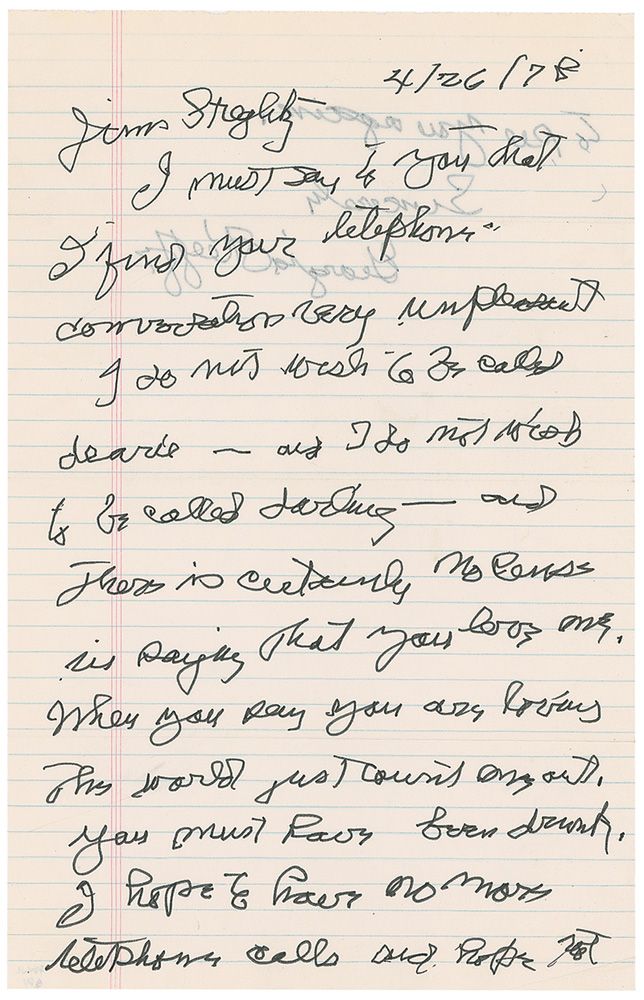 4/26/78
Jim
I must say to you that
I find your telephone
conversation very unpleasant
I do not wish to be called
dearie — and I do not wish
to be called darling — and
There is certainly no sense
in saying that you love me.
When you say you are loving
The world just count me out.
You must have been drunk.
I hope to have no more
telephone calls and hope not